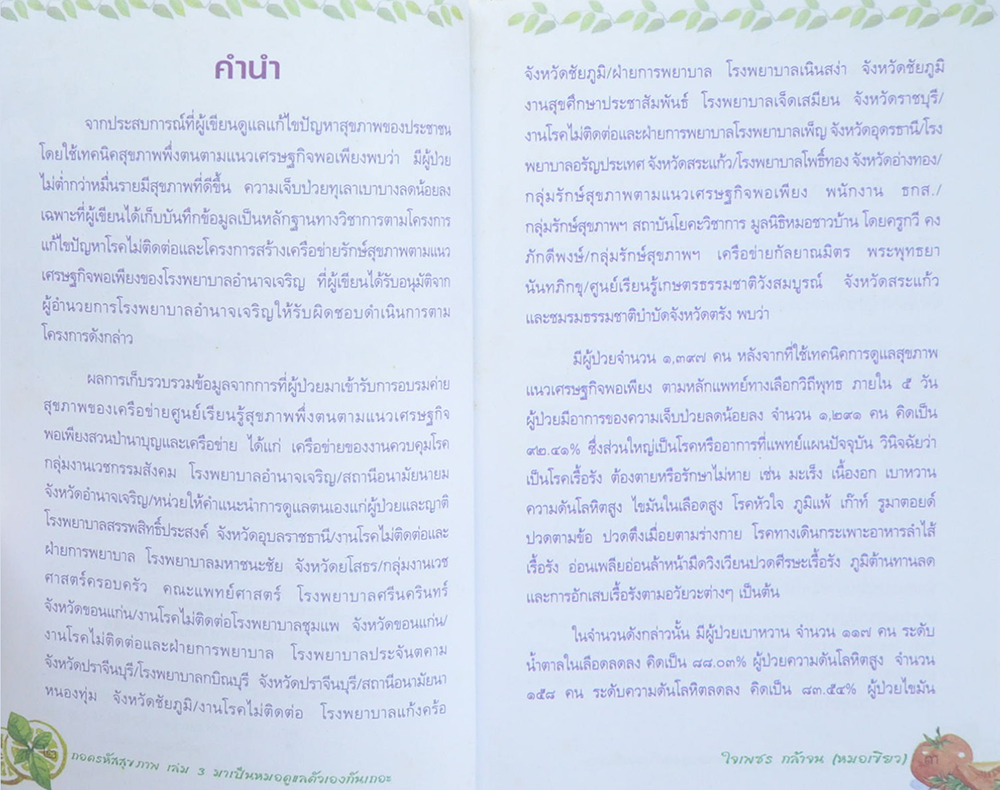 คำนำ
จากประสบการณ์ที่ผู้เขียนดูแลแก้ไขปัญหาสุขภาพของประชาชน
โดยใช้เทคนิคสุขภาพพึ่งตนตามแนวเศรษฐกิจพอเพียงพบว่า มีผู้ป่วย
ไม่ต่ำกว่าหมื่นรายมีสุขภาพที่ดีขึ้น ความเจ็บป่วยทุเลาเบาบางลดน้อยลง
เฉพาะที่ผู้เขียนได้เก็บบันทึกข้อมูลเป็นหลักฐานทางวิชาการตามโครงการ
แก้ไขปัญหาโรคไม่ติดต่อและโครงการสร้างเครือข่ายรักษ์สุขภาพตามแนว
เศรษฐกิจพอเพียงของโรงพยาบาลอำนาจเจริญ ที่ผู้เขียนได้รับอนุมัติจาก
ผู้อำนวยการโรงพยาบาลอำนาจเจริญให้รับผิดชอบดำเนินการตาม
โครงการดังกล่าว
ผลการเก็บรวบรวมข้อมูลจากการที่ผู้ป่วยมาเข้ารับการอบรมค่าย
สุขภาพของเครือข่ายศูนย์เรียนรู้สุขภาพพึ่งตนตามแนวเศรษฐกิจ
พอเพียงสวนป่านาบุญและเครือข่าย ได้แก่ เครือข่ายของงานควบคุมโรค
กลุ่มงานเวชกรรมสังคม โรงพยาบาลอำนาจเจริญ/สถานีอนามัยนายม
จังหวัดอำนาจเจริญ/หน่วยให้คำแนะนำการดูแลตนเองแก่ผู้ป่วยและญาติ
โรงพยาบาลสรรพสิทธิ์ประสงค์ จังหวัดอุบลราชธานี/งานโรคไม่ติดต่อและ
ฝ่ายการพยาบาล โรงพยาบาลมหาชนะชัย จังหวัดยโสธร/กลุ่มงานเวช
ศาสตร์ครอบครัว คณะแพทย์ศาสตร์ โรงพยาบาลศรีนครินทร์
จังหวัดขอนแก่น/งานโรคไม่ติดต่อโรงพยาบาลชุมแพ จังหวัดขอนแก่น/
งานโรคไม่ติดต่อและฝ่ายการพยาบาล โรงพยาบาลประจันตคาม
จังหวัดปราจีนบุรี/โรงพยาบาลกบิณบุรี จังหวัดปราจีนบุรี/สถานีอนามัยนา
หนองทุ่ม จังหวัดชัยภูมิ/งานโรคไม่ติดต่อ โรงพยาบาลแก้งคร้อ
๒ ถอดรหัสสุขภาพ เล่ม 3 มาเป็นหมอดูแลตัวเองกันเถอะ
จังหวัดชัยภูมิ/ฝ่ายการพยาบาล โรงพยาบาลเนินสง่า จังหวัดชัยภูมิ
งานสุขศึกษาประชาสัมพันธ์ โรงพยาบาลเจ็ดเสมียน จังหวัดราชบุรี/
งานโรคไม่ติดต่อและฝ่ายการพยาบาลโรงพยาบาลเพ็ญ จังหวัดอุดรธานี/โรง
พยาบาลอรัญประเทศ จังหวัดสระแก้ว/โรงพยาบาลโพธิ์ทอง จังหวัดอ่างทอง/
กลุ่มรักษ์สุขภาพตามแนวเศรษฐกิจพอเพียง พนักงาน ธกส./
กลุ่มรักษ์สุขภาพฯ สถาบันโยคะวิชาการ มูลนิธิหมอชาวบ้าน โดยครูกวี คง
ภักดีพงษ์/กลุ่มรักษ์สุขภาพฯ เครือข่ายกัลยาณมิตร พระพุทธยา
นันทภิกขุ/ศูนย์เรียนรู้เกษตรธรรมชาติวังสมบูรณ์ จังหวัดสระแก้ว
และชมรมธรรมชาติบำบัดจังหวัดตรัง พบว่า
มีผู้ป่วยจำนวน ๑,๓๙๗ คน หลังจากที่ใช้เทคนิคการดูแลสุขภาพ
แนวเศรษฐกิจพอเพียง ตามหลักแพทย์ทางเลือกวิถีพุทธ ภายใน ๕ วัน
ผู้ป่วยมีอาการของความเจ็บป่วยลดน้อยลง จำนวน ๑,๒๙๑ คน คิดเป็น
๙๒.๔๑% ซึ่งส่วนใหญ่เป็นโรคหรืออาการที่แพทย์แผนปัจจุบัน วินิจฉัยว่า
เป็นโรคเรื้อรัง ต้องตายหรือรักษาไม่หาย เช่น มะเร็ง เนื้องอก เบาหวาน
ความดันโลหิตสูง ไขมันในเลือดสูง โรคหัวใจ ภูมิแพ้ เก๊าท์ รูมาตอยด์
ปวดตามข้อ ปวดตึงเมื่อยตามร่างกาย โรคทางเดินกระเพาะอาหารลำไส้
เรื้อรัง อ่อนเพลียอ่อนล้าหน้ามืดวิงเวียนปวดศีรษะเรื้อรัง ภูมิต้านทานลด
และการอักเสบเรื้อรังตามอวัยวะต่างๆ เป็นต้น
ในจำนวนดังกล่าวนั้น มีผู้ป่วยเบาหวาน จำนวน ๑๑๗ คน ระดับ
น้ำตาลในเลือดลดลง คิดเป็น ๘๘.๐๓% ผู้ป่วยความดันโลหิตสูง จำนวน
๑๕๘ คน ระดับความดันโลหิตลดลง คิดเป็น ๘๓.๕๔% ผู้ป่วยไขมัน
ใจเพชร กล้าจน (หมอเขียว) ๓